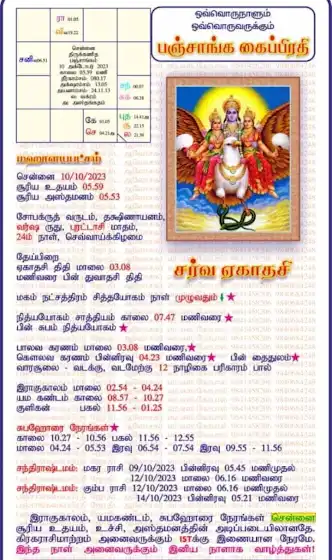 ஒவ்வொருநாளும்
ஒவ்வொருவருக்கும்
பஞ்சாங்க கைப்பிரதி
ரா 01.05
சென்னை
திருக்கணித
பஞ்சாங்கம்
10 அக்டோபர் 2023
காலை 05.59 மணி
சனி
சந்
சுக்
புத
சூ
கே 01.05
செ
ல
மஹாளயபட்சம்
சென்னை 10/10/2023
சூரிய உதயம் 05.59
சூரிய அஸ்தமனம் 05.53
சோபக்ருத் வருடம், தக்ஷிணாயனம்,
வர்ஷ ருது, புரட்டாசி மாதம்,
24ம் நாள், செவ்வாய்க்கிழமை
தேய்பிறை
ஏகாதசி திதி மாலை 03.08
மணிவரை பின் துவாதசி திதி
சர்வ ஏகாதசி
மகம் நட்சத்திரம் சித்தயோகம் நாள் முழுவதும் ↓ ★
நித்யயோகம் சாத்தியம் காலை 07.47 மணிவரை ★
பின் சுபம் நித்யயோகம் ★
பாலவ கரணம் மாலை 03.08 மணிவரை,★
கௌலவ கரணம் பின்னிரவு 04.23 மணிவரை★ பின் தைதுலம்★
வாரசூலை - வடக்கு, வடமேற்கு 12 நாழிகை பரிகாரம் பால்
இராகுகாலம் மாலை 02.54 - 04.24
யம கண்டம் காலை 08.57 - 10.27
குளிகன் பகல் 11.56 - 01.25
சுபஹோரை நேரங்கள்★
காலை 10.27 - 10.56 பகல் 11.56 - 12.55
மாலை 04.24 - 05.53 இரவு 06.54 - 07.54 இரவு 09.55 - 11.56
சந்திராஷ்டமம்: மகர ராசி 09/10/2023 பின்னிரவு 05.45 மணிமுதல்
12/10/2023 மாலை 06.16 மணிவரை
சந்திராஷ்டமம்: கும்ப ராசி 12/10/2023 மாலை 06.16 மணிமுதல்
14/10/2023 பின்னிரவு 05.21 மணிவரை
இராகுகாலம், யமகண்டம், சுபஹோரை நேரங்கள் சென்னை
சூரிய உதயம், உச்சி, அஸ்தமனத்தின் அடிப்படையிலானதே.
கிரகராசிமாற்றம் அனைவருக்கும் ISTக்கு இணையான நேரமே.
இந்த நாள் அனைவருக்கும் இனிய நாளாக வாழ்த்துகள்!